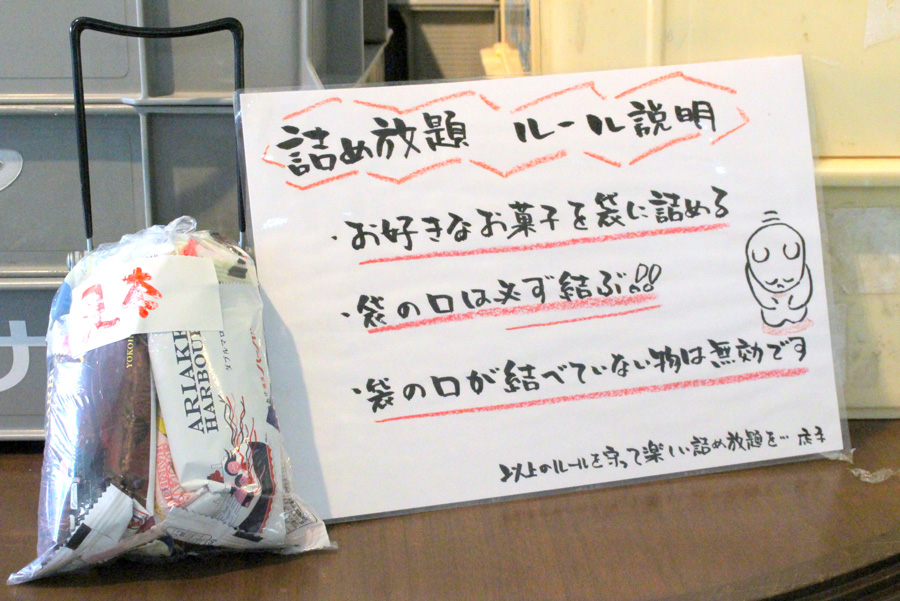 詰め放題 ルール説明
・お好きなお菓子を袋に詰める
・袋の口は必ず結ぶ!!
・袋の口が結べていない物は無効です
以上のルールを守って楽しい詰め放題を… 店子
見本
ARIAKE
HARBOUR